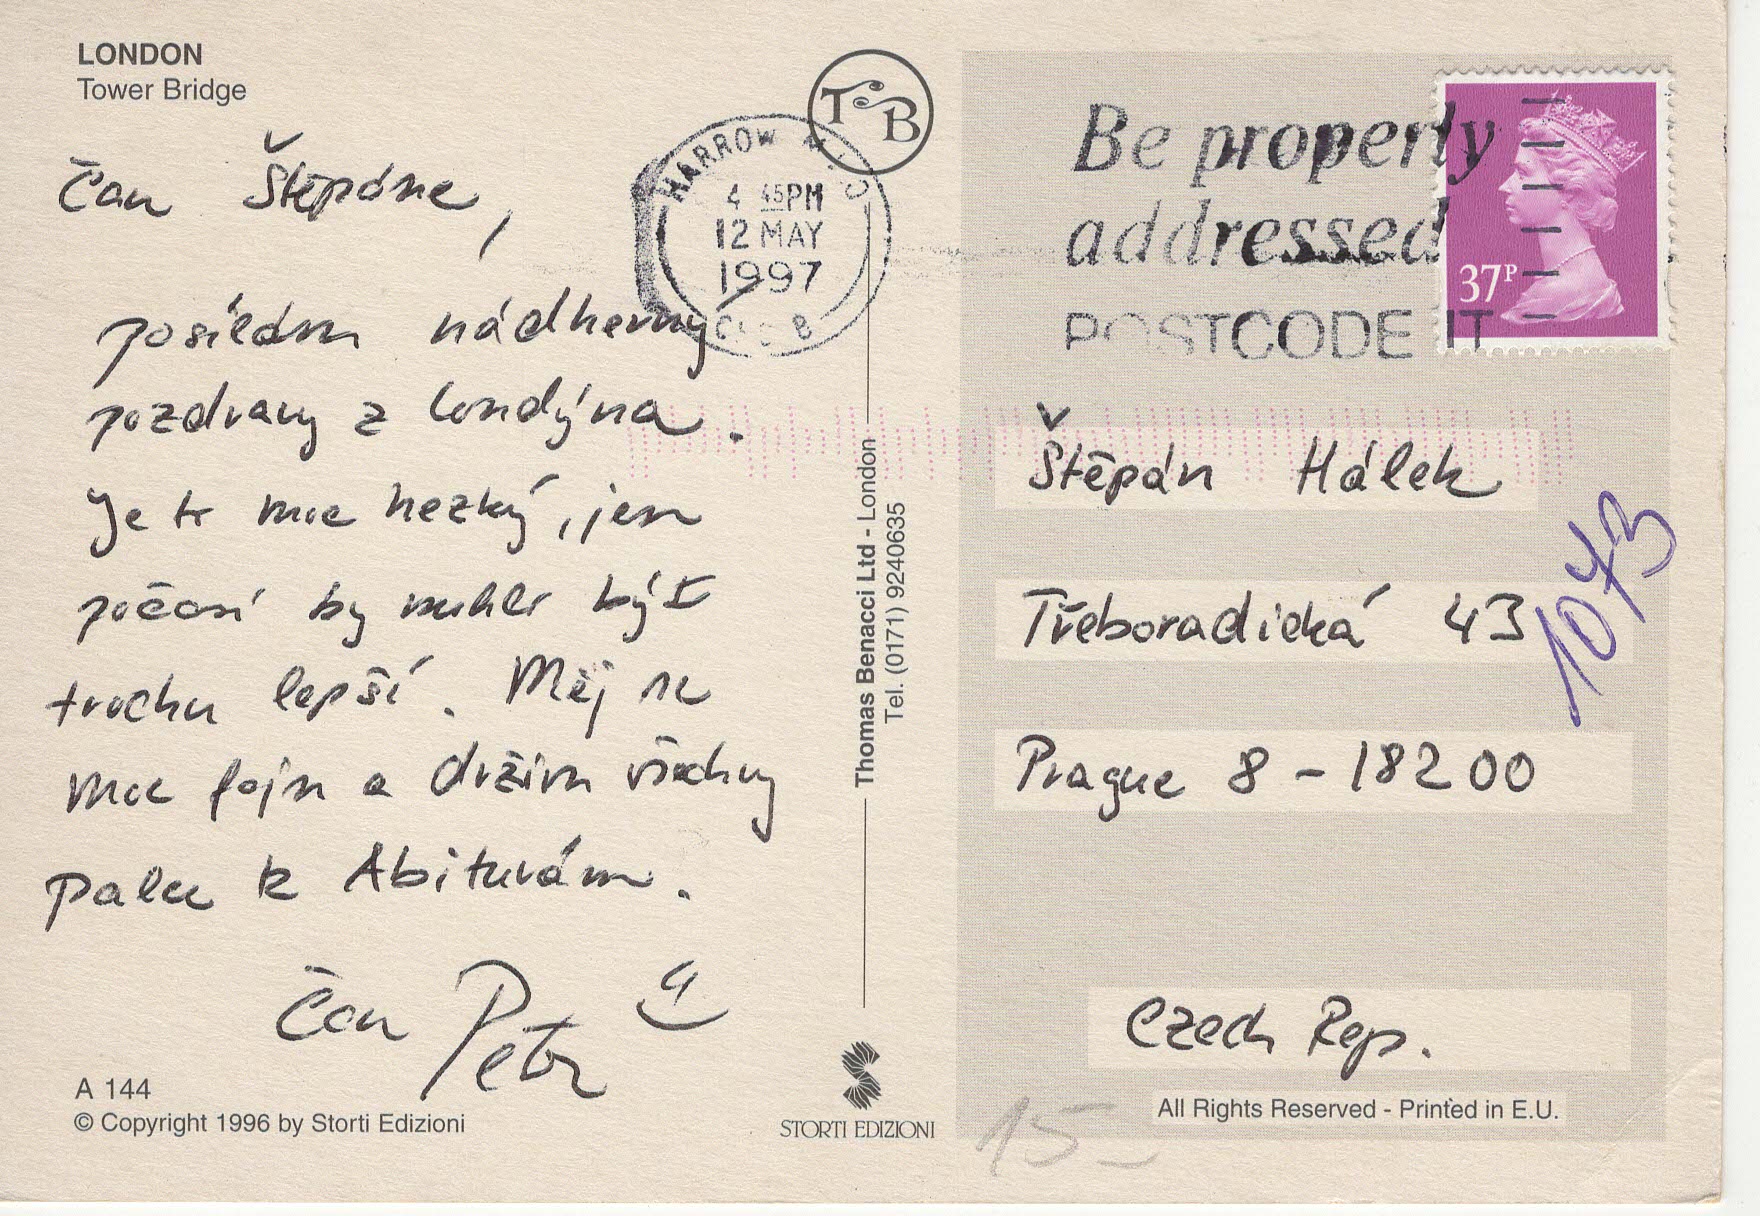 LONDON
Tower Bridge
Čau Štěpáne,
posílám nádherný
pozdravy z Londýna.
Je to moc hezký, jen
počasí by mohlo být
trochu lepší. Měj se
moc fajn a držím všechny
palce k Abiturám.
Čau Petr
A 144
© Copyright 1996 by Storti Edizioni
TB
HARROW
4 45PM
12 MAY
1997
Thomas Benacci Ltd - London
Tel. (0171) 9240635
STORTI EDIZIONI
Be properly
addressed
POSTCODE IT
37P
Štěpán Hálek
Třeboradická 43
1073
Prague 8 - 18200
Czech Rep.
All Rights Reserved - Printed in E.U.
15